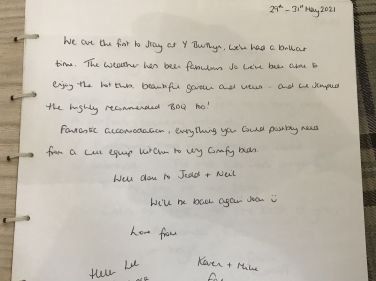 29th - 31st May 2021
We are the first to stay at Y Bwthyn, we've had a brilliant
time. The weather has been fabulous so we've been able to
enjoy the hot tub, beautiful garden and views - and we
the highly recommended BBQ too!
Fantastic accommodation, everything you could possibly need
from a well equip kitchen to very comfy beds.
Well done to Jedd + Neil
We'll be back again soon
Love from
Helen Lee Karen + Mike